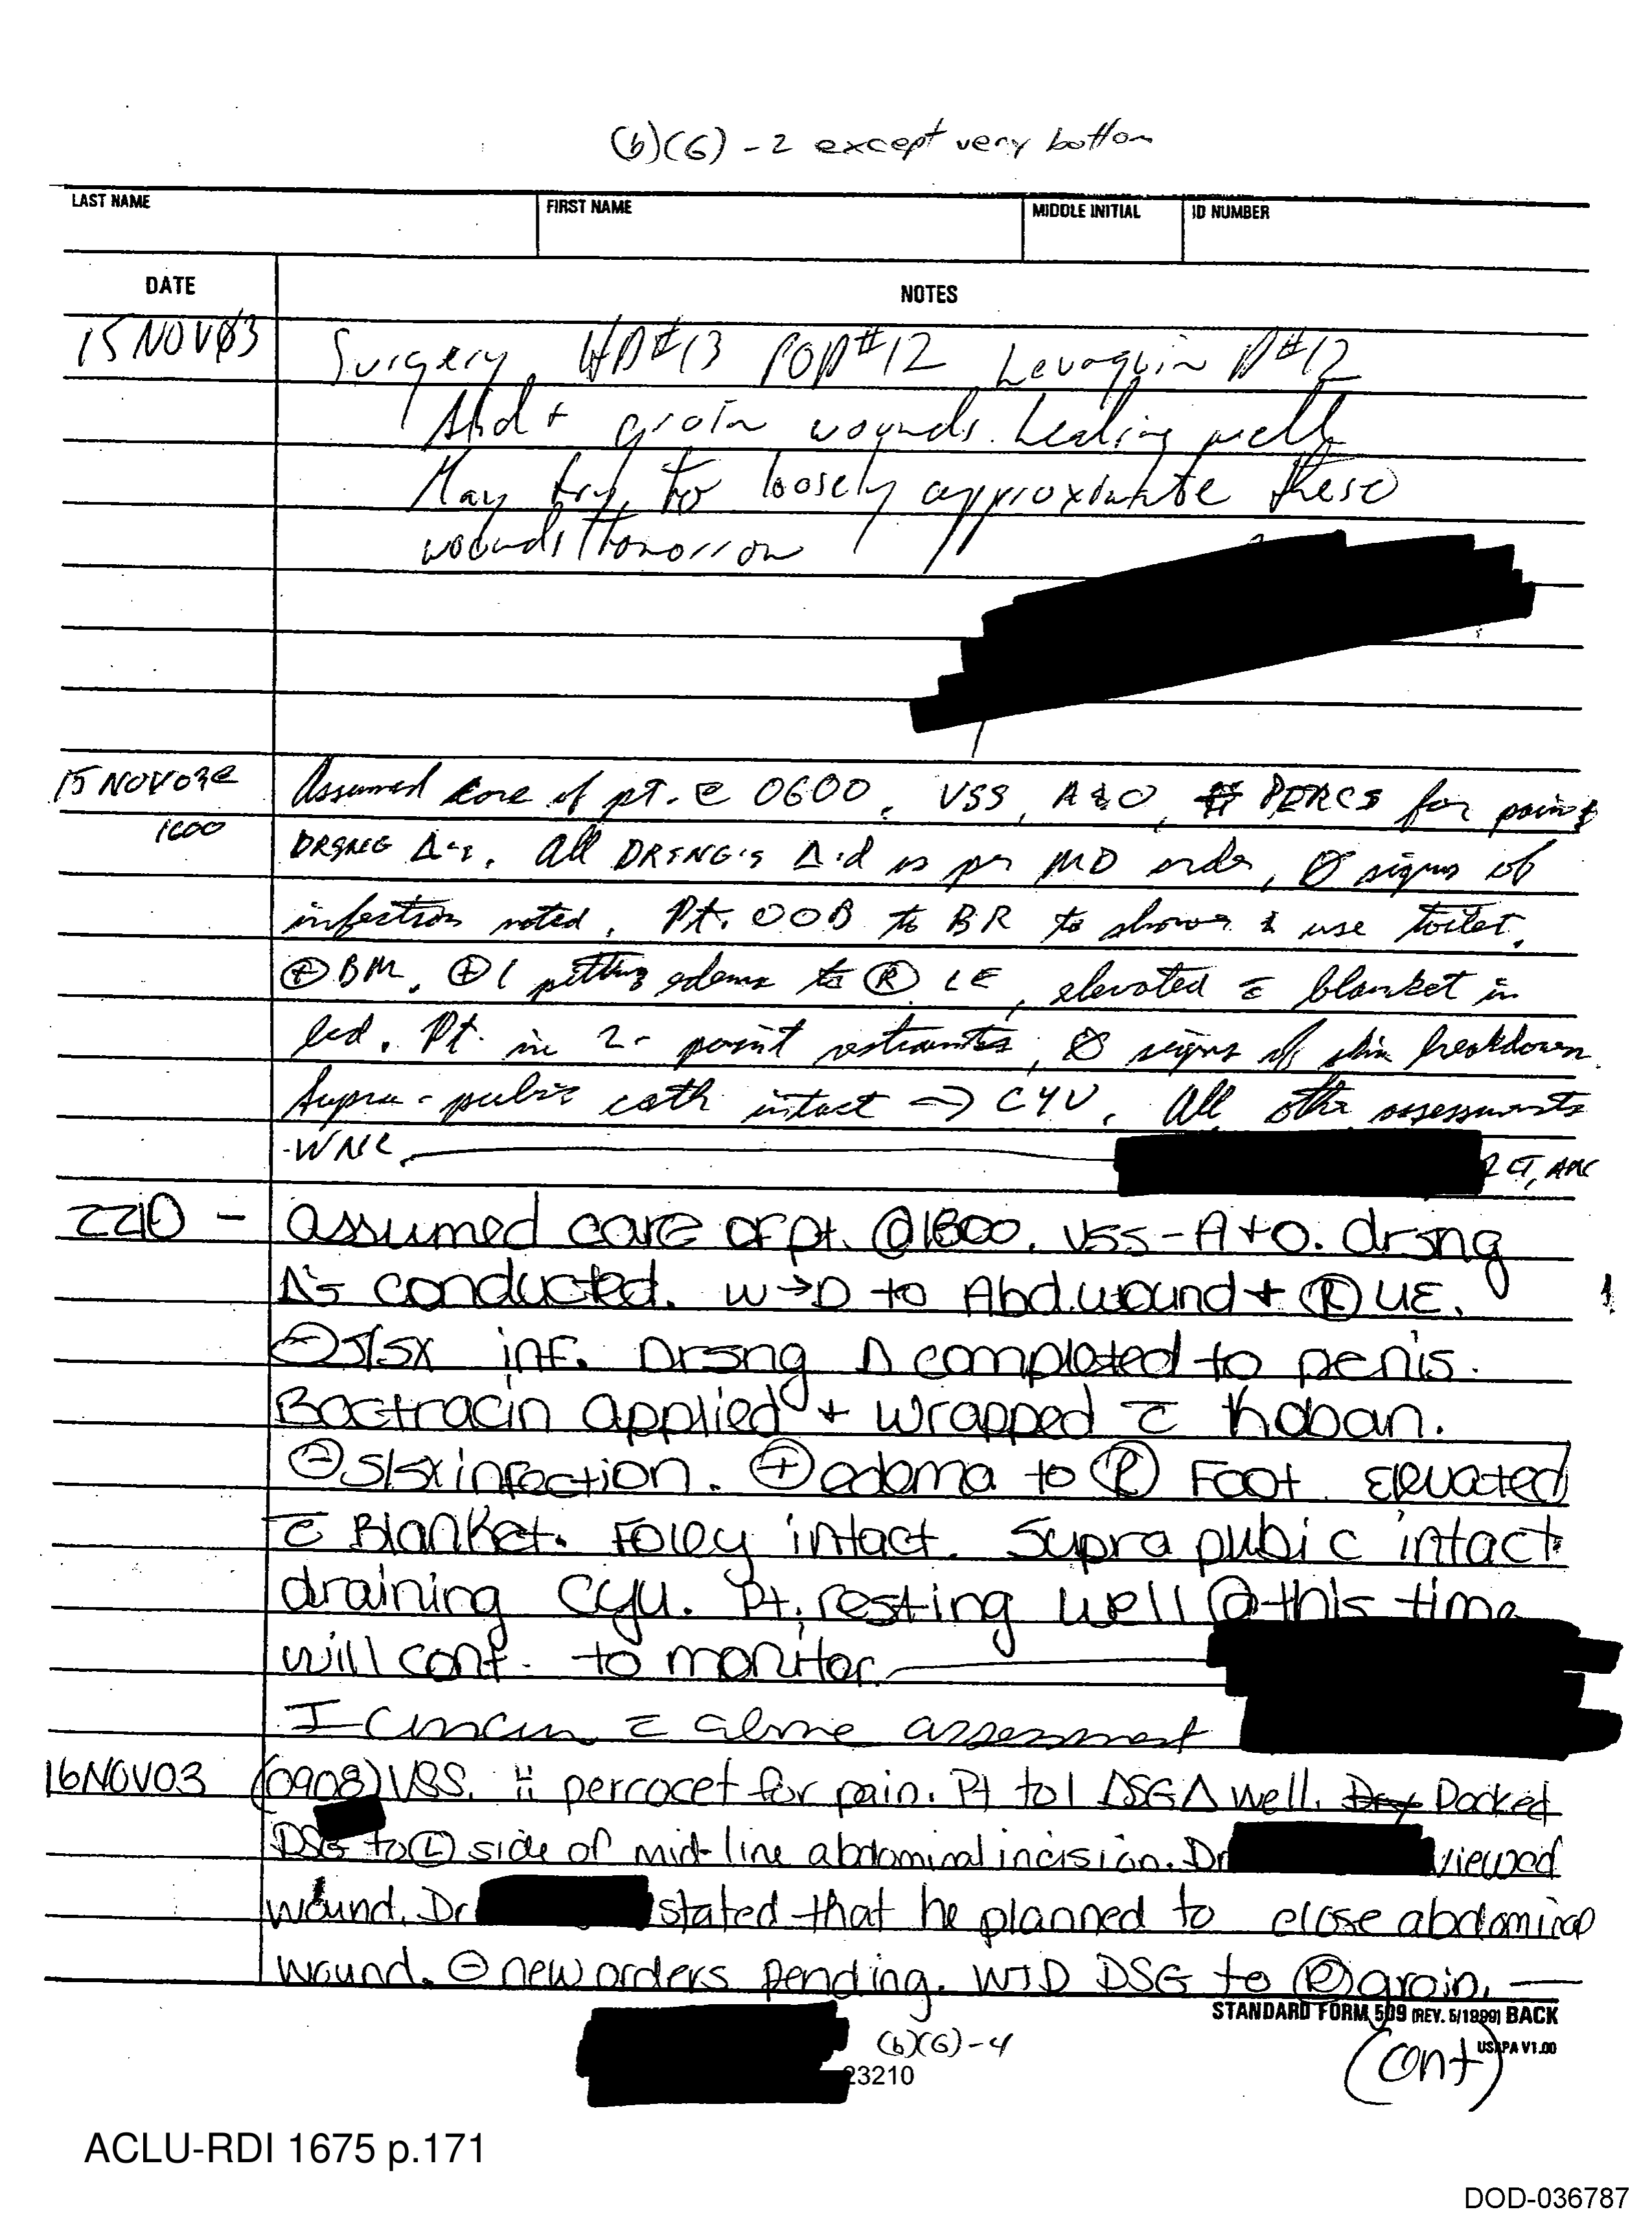 (b)(6) - 2 except very bottom
LAST NAME FIRST NAME MIDDLE INITIAL ID NUMBER
DATE NOTES
15 NOV03 Surgery HD#13 POD#12 Levaquin D#12
Abd + groin wounds healing well
May try to loosely approximate these
wounds tomorrow
15 NOV03 @ Assumed care of pt. @ 0600. VSS, A&O, PERCS for pain &
1600 DRSNG Δ's. All DRSNG's Δ'd as per MD order, Ø signs of
infection noted. Pt. OOB to BR to shower & use toilet.
⊕ BM. ⊕1 pitting edema to Ⓡ LE, elevated c̄ blanket in
bed. Pt. in 2-point restraints, Ø signs of skin breakdown.
Supra-pubic cath intact → CYU. All other assessments
WNL
2210 - assumed care of pt. @1800. VSS-A+O. drsng
Δ's conducted. W→D to Abd.wound + Ⓡ UE.
⊖S/Sx inf. Drsng Δ completed to penis.
Bactracin applied + wrapped c̄ Koban.
⊖S/Sx infection. ⊕edema to Ⓡ Foot. Elevated
c̄ Blanket. Foley intact. Supra pubic intact
draining cyu. Pt. resting well @ this time
will cont. to monitor.
I concur c̄ above assessment
16NOV03 (0908) VSS. ii percocet for pain. Pt tol DSG Δ well. Packed
DSG to Ⓛ side of mid-line abdominal incision. Dr viewed
wound. Dr stated that he planned to close abdominal
wound. ⊖ new orders pending. WTD DSG to Ⓡ groin.
STANDARD FORM 509 (REV. 5/1999) BACK
USAPA V1.00
(b)(6)-4
(cont)
23210
ACLU-RDI 1675 p.171
DOD-036787